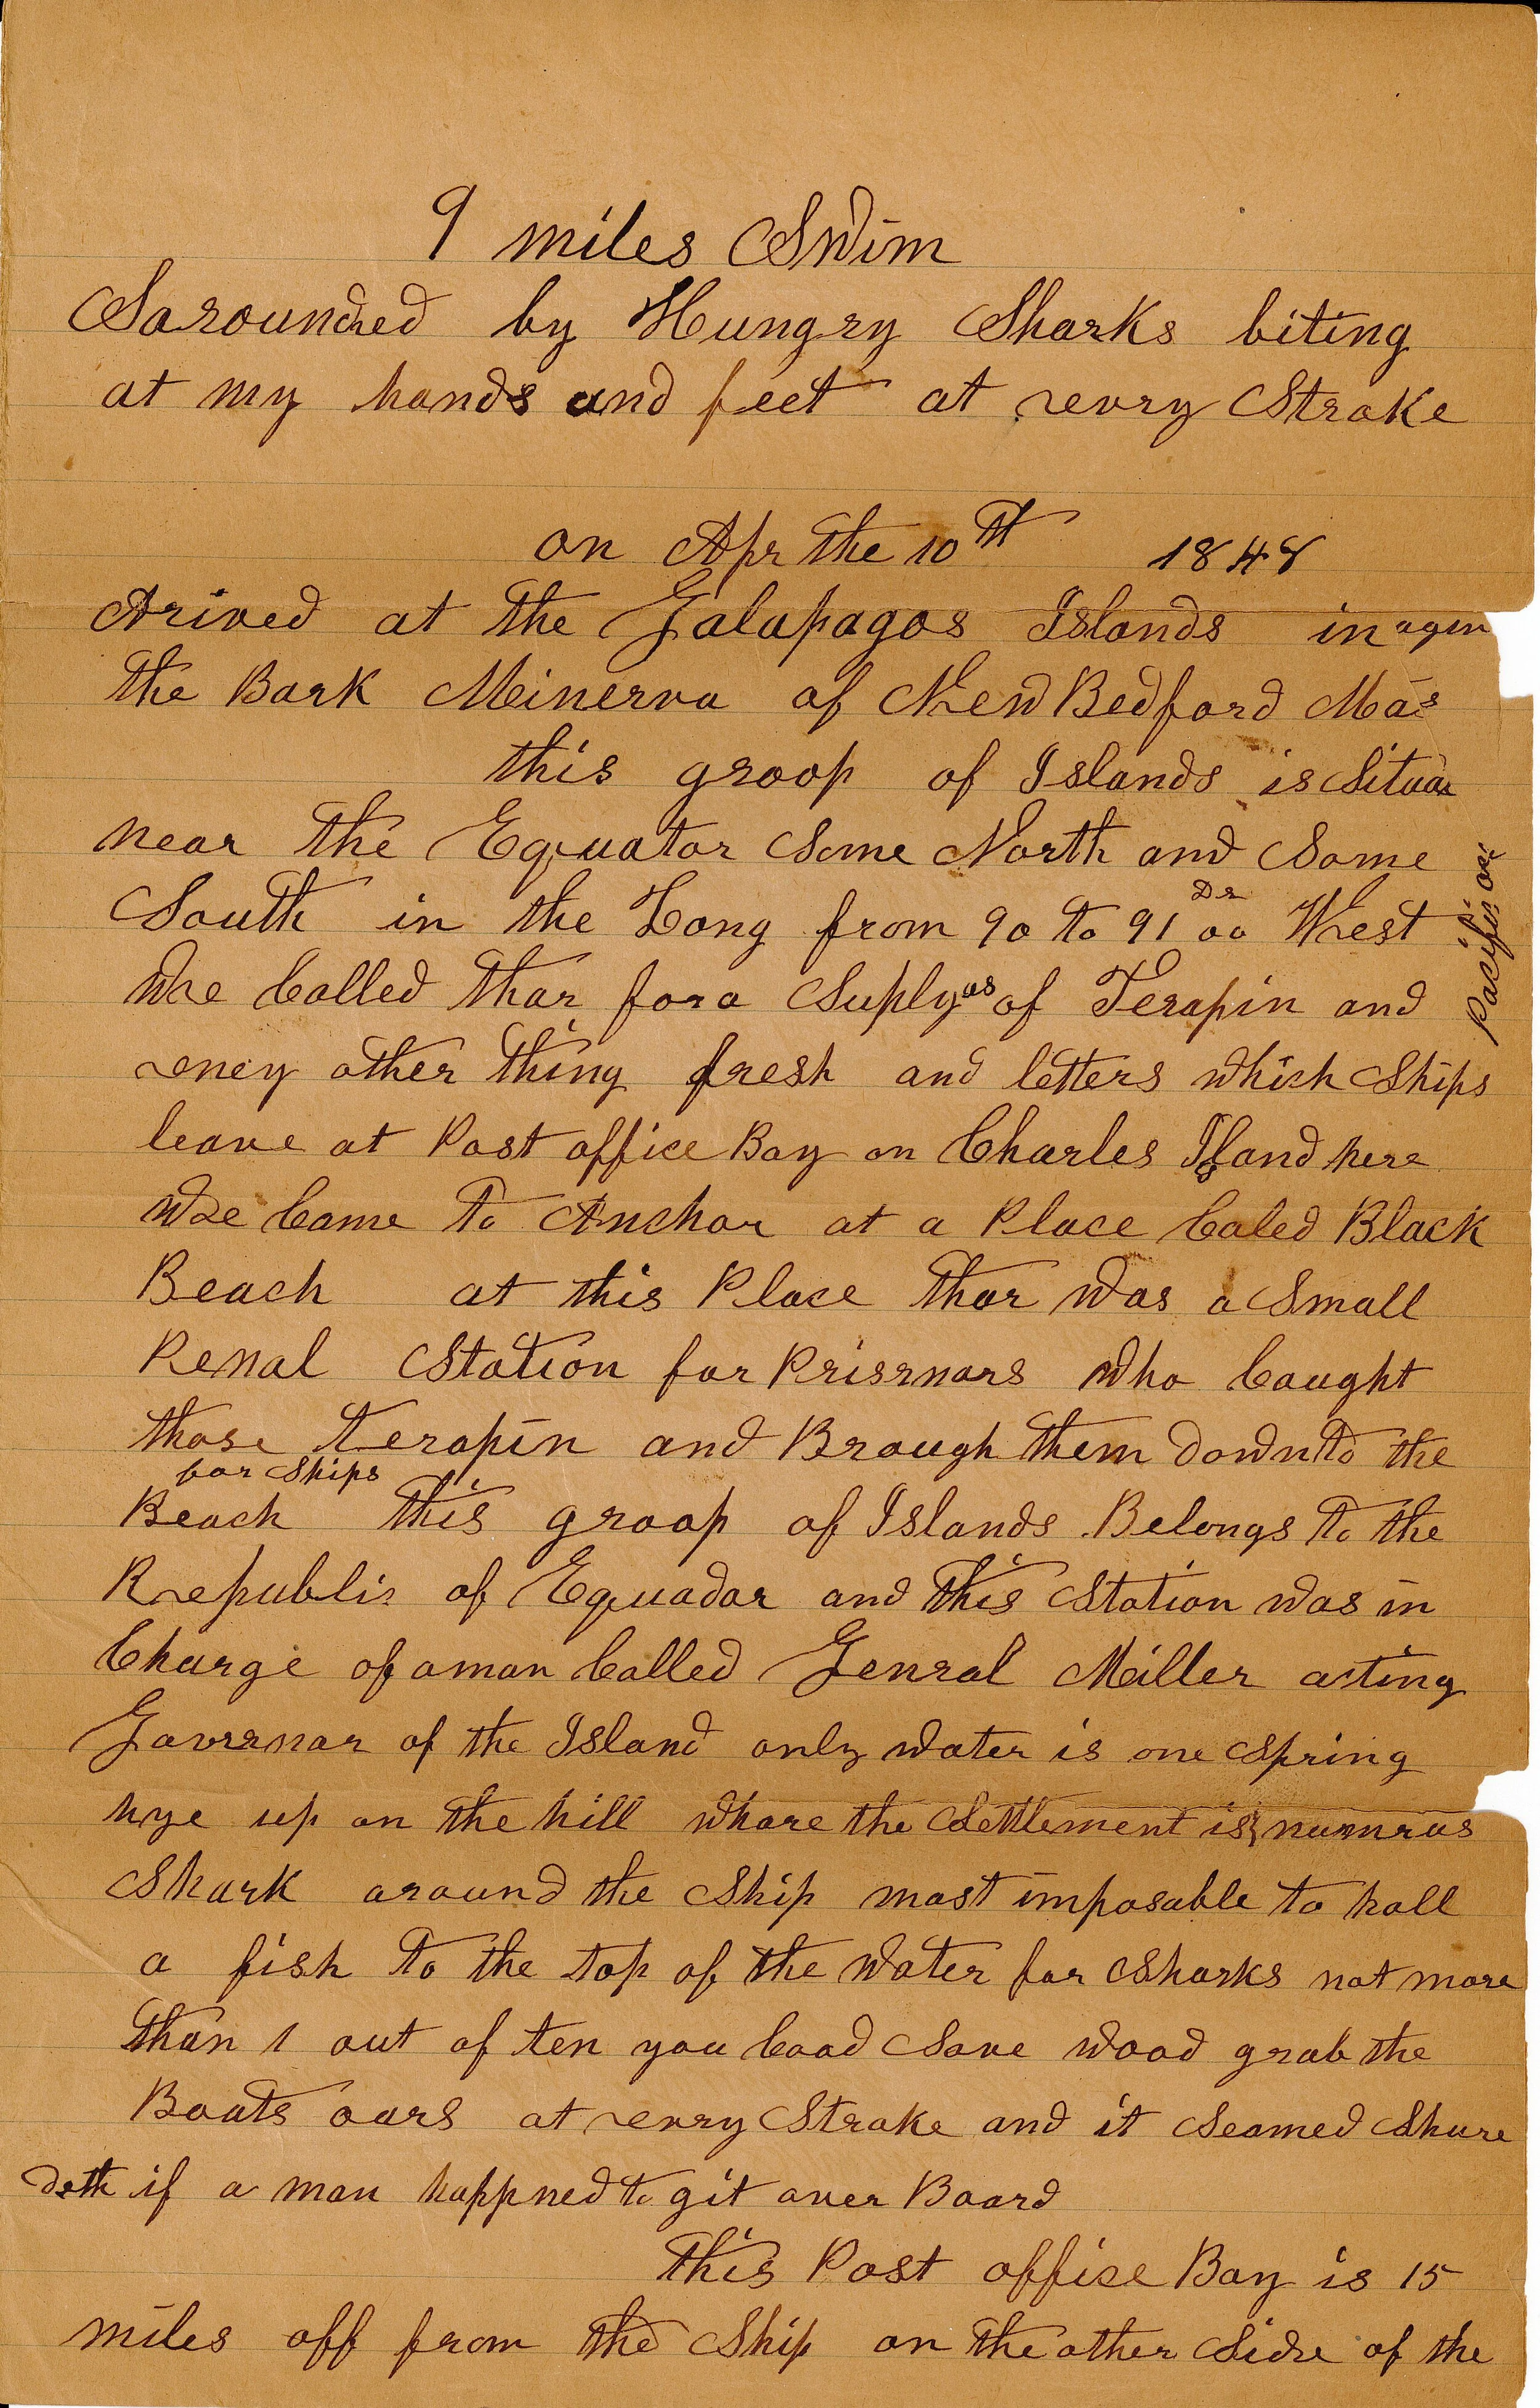 9 miles Swim
Sarounded by Hungry Sharks biting
at my hands and feet at evry Stroke
on Apr the 10th 1848
Arived at the Galapagos Islands in
the Bark Minerva of New Bedford Mas
this groop of Islands is
near the Equator Some North and Some
South in the Long from 90 to 91 Ds 00 West
We Called thar for a Suply as of Terapin and
eney other thing fresh and letters which Ships
leave at Post office Bay on Charles Island here
We Came to Anchor at a Place Caled Black
Beach at this Place thar was a Small
Penal Station for Prisrnors who Caught
those terapin and Brough them down to the
for Ships
Beach this groop of Islands Belongs to the
Republic of Equador and this Station was in
Charge of a man Called Genral Miller acting
Governor of the Island only water is one Spring
hye up on the hill whare the Settlement is numrus
Shark around the Ship most imposable to hall
a fish to the top of the water for Sharks not more
than 1 out of ten you Cood Save wood grab the
Boats oars at evry Stroke and it Seamed Shure
deth if a man happned to git over Board
This Post office Bay is 15
miles off from the Ship on the other Side of the